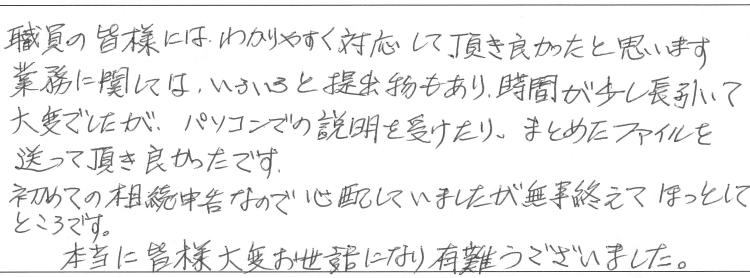 職員の皆様には、わかりやすく対応して頂き良かったと思います
業務に関しては、いろいろと提出物もあり、時間が少し長引いて
大変でしたが、パソコンでの説明を受けたり、まとめたファイルを
送って頂き良かったです。
初めての相続申告なので心配していましたが無事終えてほっとして
ところです。
本当に皆様大変お世話になり有難うございました。